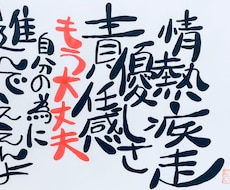 情熱疾走
優しさ
責任感
もう大丈夫
自分の為に
進んでええよ